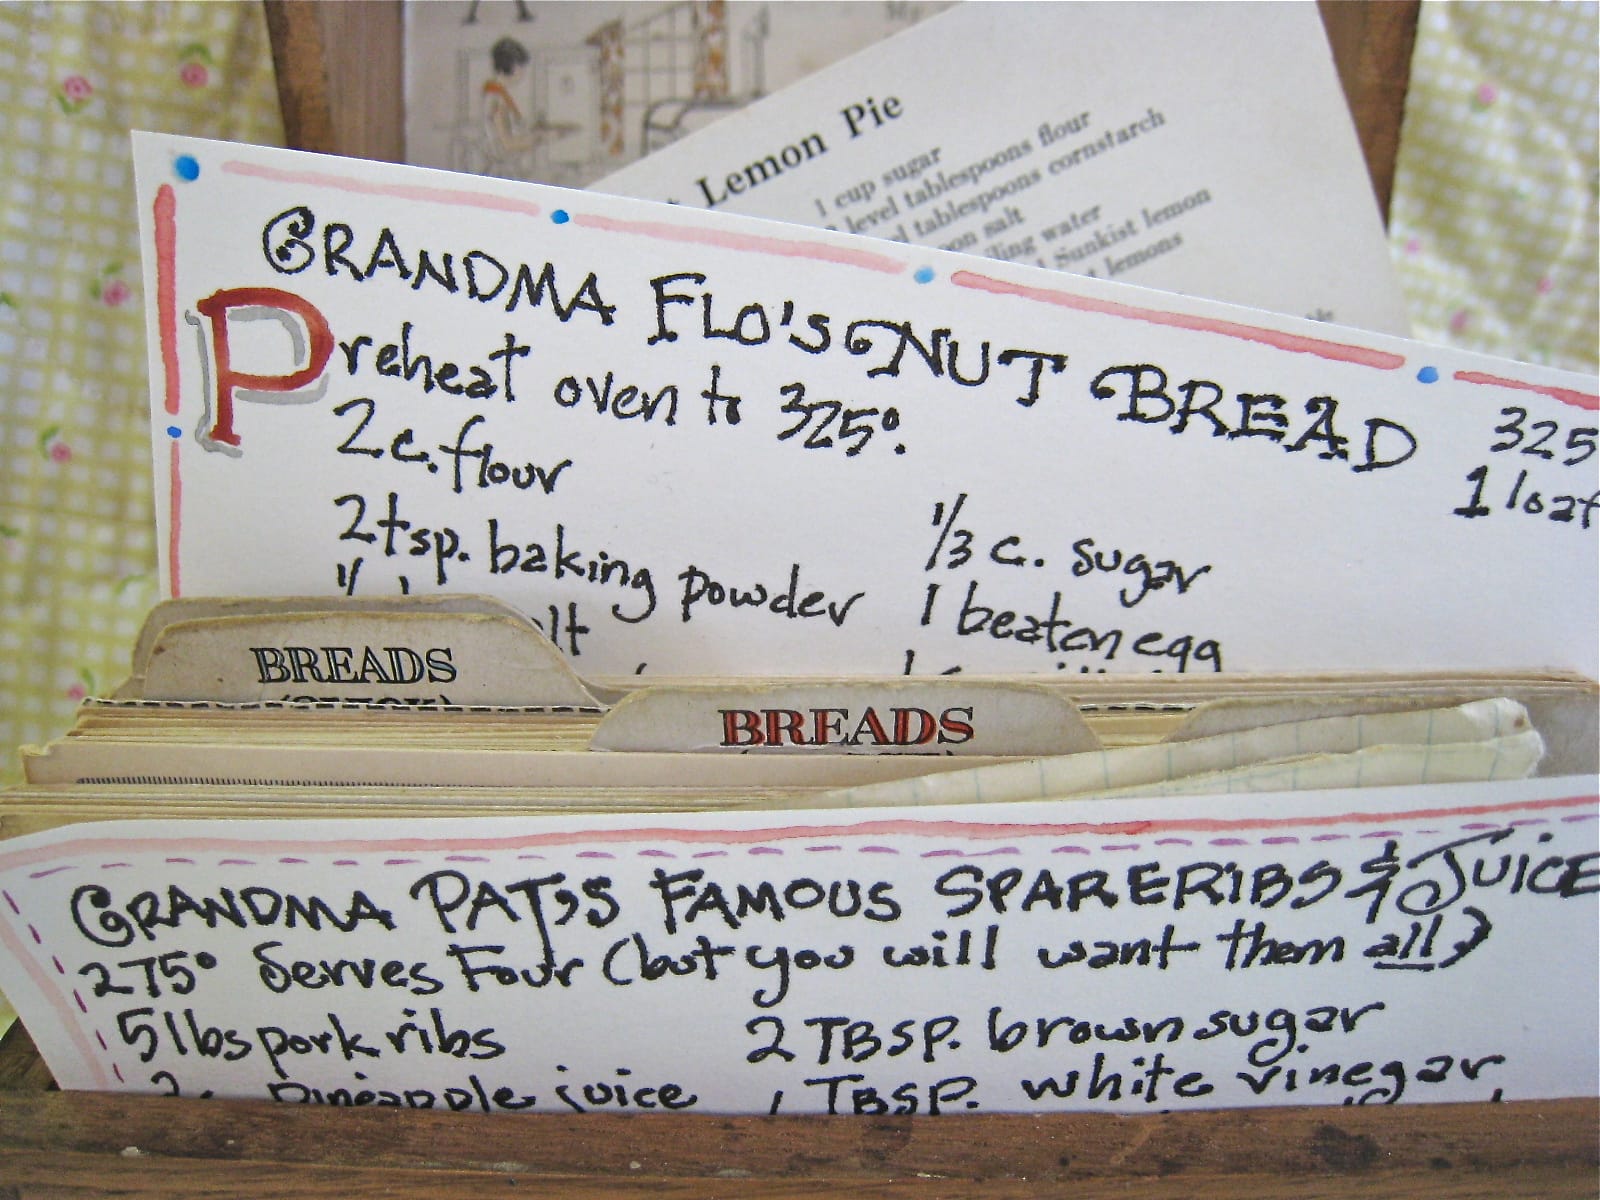 Lemon Pie
1 cup sugar
level tablespoons flour
tablespoons cornstarch
salt
water
Sunkist lemon
lemons
GRANDMA FLO'S NUT BREAD
Preheat oven to 325°.
325
1 loaf
2 c. flour
2 tsp. baking powder
1/3 c. sugar
1 beaten egg
BREADS
BREADS
GRANDMA PAT'S FAMOUS SPARERIBS & JUICE
275° Serves Four (but you will want them all)
5 lbs pork ribs
2 TBSP. brown sugar
pineapple juice
1 TBSP. white vinegar